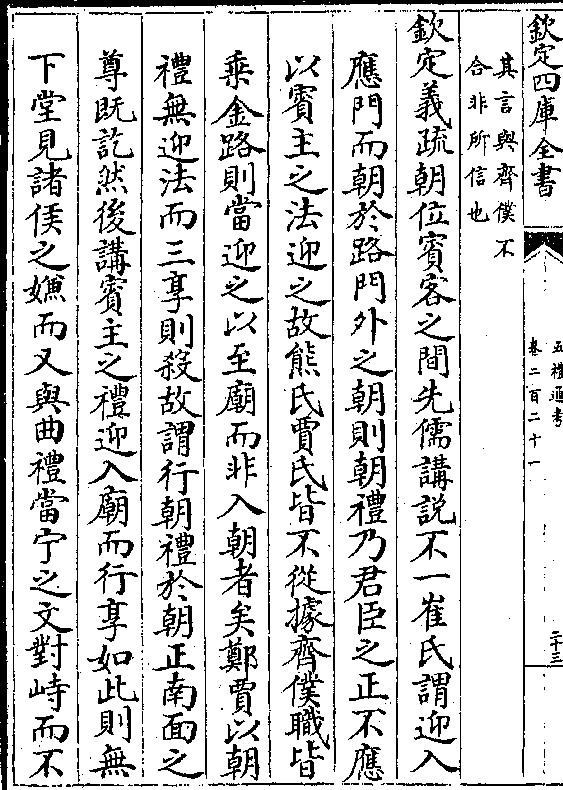 欽定四庫全書
五禮通考
卷二百二十一
二十三
其言與齊僕不
合非所信也
欽定義疏朝位賓客之間先儒講説不一崔氏謂迎入
應門而朝於路門外之朝則朝禮乃君臣之正不應
以賓主之法迎之故熊氏賈氏皆不從據齊僕職皆
乘金路則當迎之以至廟而非入朝者矣鄭賈以朝
禮無迎法而三享則殺故謂行朝禮於朝正南面之
尊既訖然後講賓主之禮迎入廟而行享如此則無
下堂見諸侯之嫌而又與曲禮當宁之文對峙而不